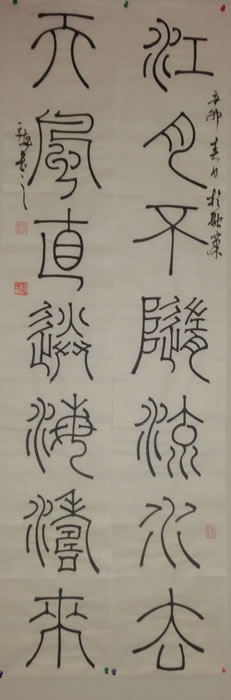 江月不隨流水去
辛卯春月於
天風直送海濤來